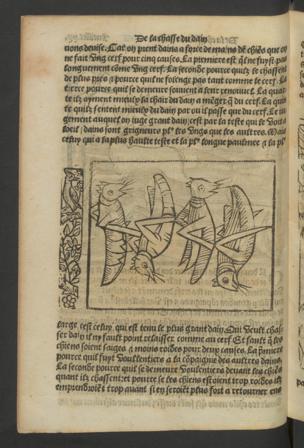 De la chasse du dain
nons deuise. Car on prent dains a force de mains de chiẽs que on
ne fait vng cerf pour cinq causes. La premiere est qͥl ne fuyst pas
longuement cõme vng cerf. La seconde pource quilz se chassent
de plus pres
tierce pource quil se demeure souuent a leur
te ilz ayment mieulx la chair du dain a menger q̃ du cerf. La quin
te quilz sentent mieulx du dain par ou il passe que du cerf. Le iu
gement auquel on iuge grant dain; cest par la teste que se voit a
loeil; dains sont greigneurs pl⁹ les vngs que les aultres. Mais
cestuy qui a la plus haulte teste et la pl⁹ longue paulmee a la pl⁹
large cest cestuy qui est tenu le plus grant dain. Qui veult chas
ser dain il ny fault point relaisser comme au cerf Et fault q̃ les
chiens soient saiges a moins roides pour deux causes. La premiere
pource quil fuyt voulentiers a la cõpaignie des aultres dains.
La seconde pource quil se demeure voulentiers deuant les chiẽs
quant ilz chassent: et pource se les chiens estoient trop roides ilz
trop auant si en seroiẽt plus fort a retourner